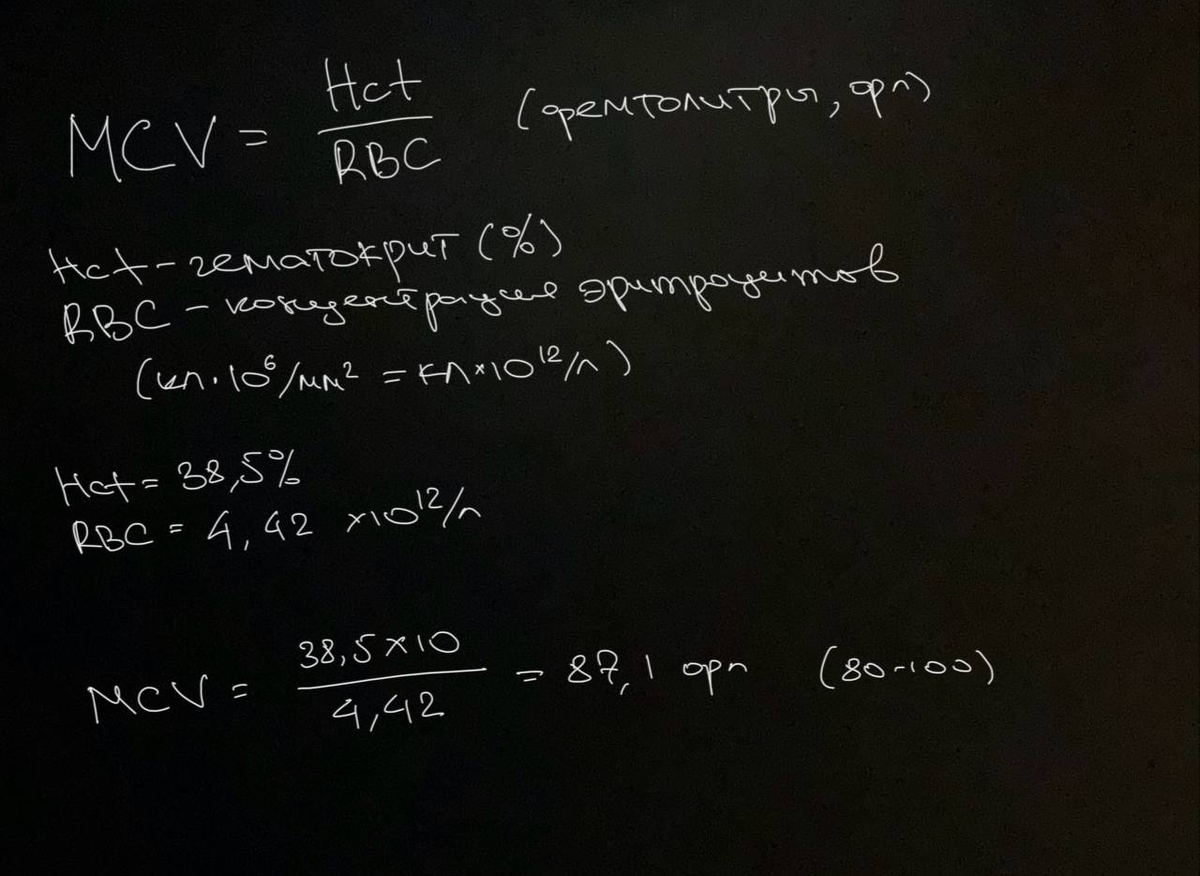 MCV = Hct / RBC (фемтолитры, фл)
Hct - гематокрит (%)
RBC - концентрация эритроцитов
(кл·10⁶/мм² = кл×10¹²/л)
Hct = 38,5%
RBC = 4,42 ×10¹²/л
MCV = 38,5×10 / 4,42 = 87,1 фл (80-100)